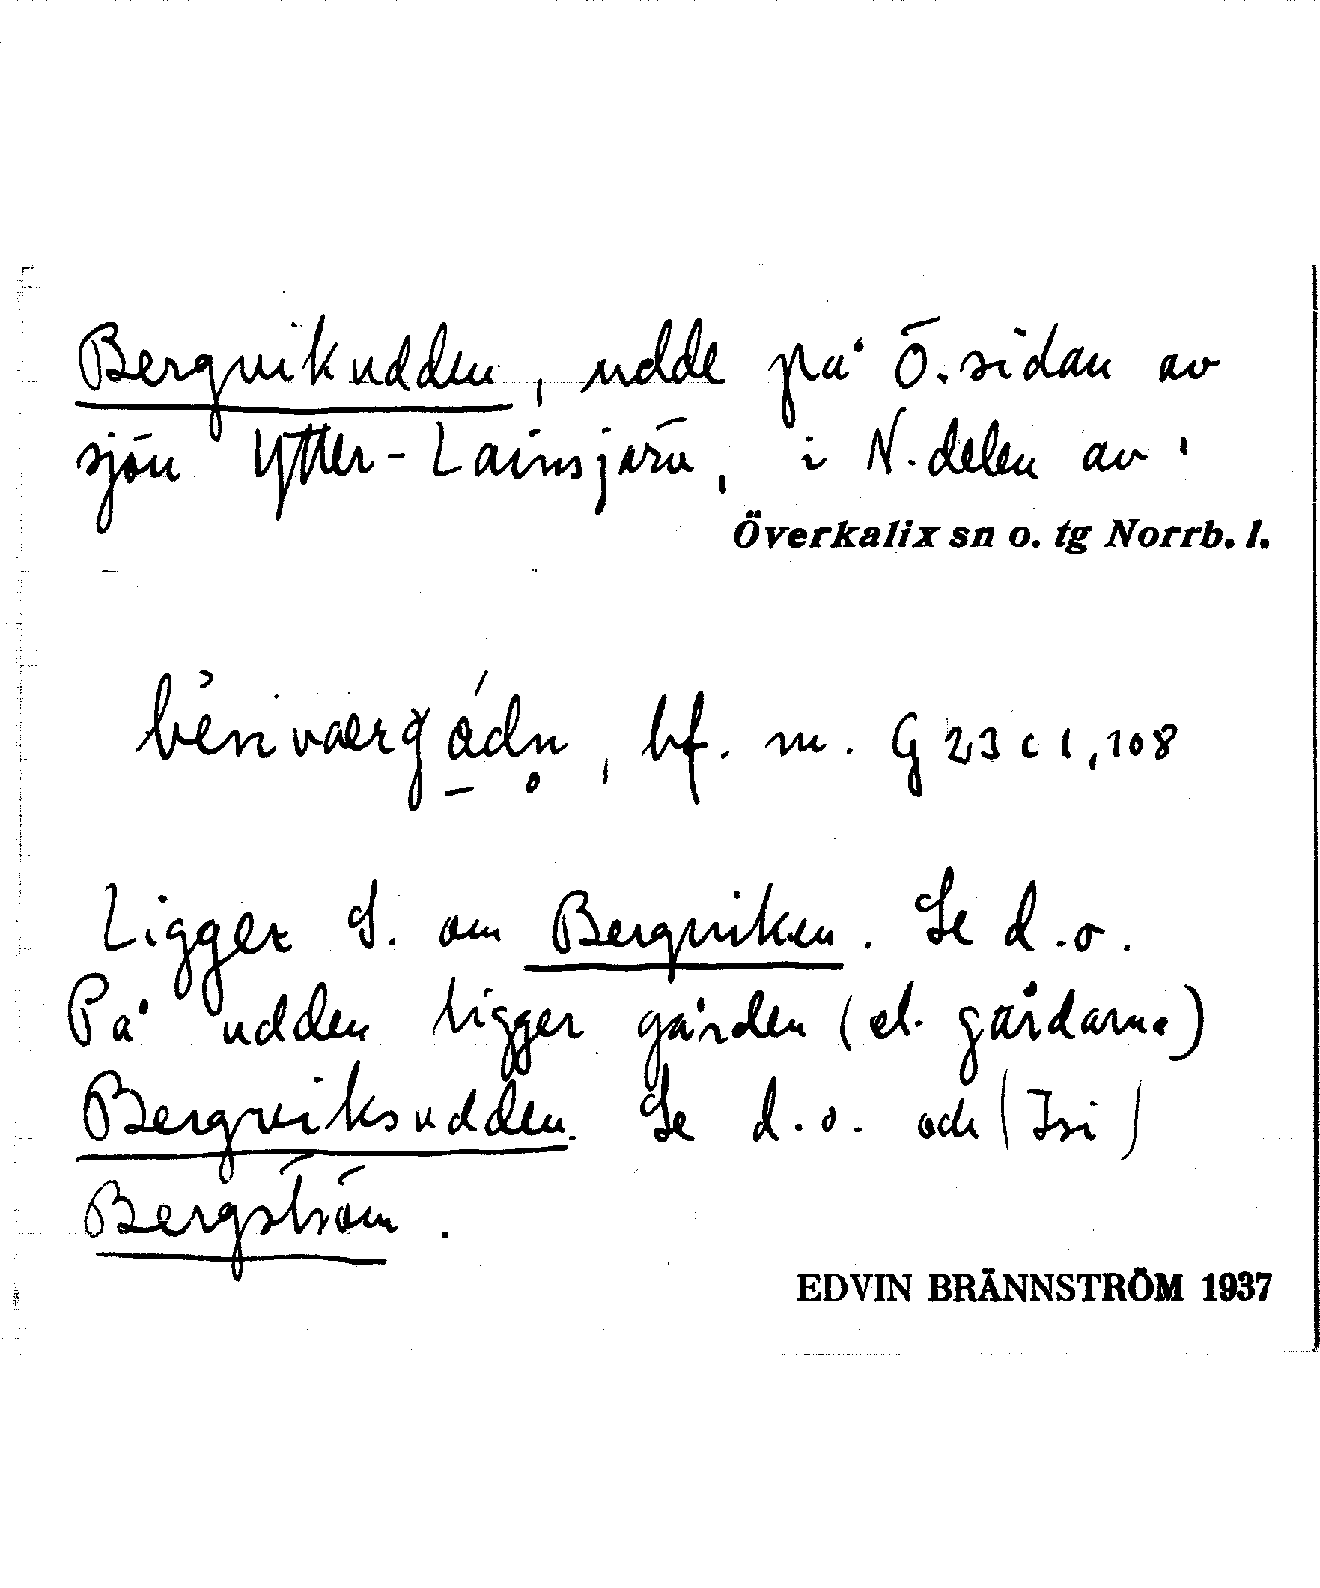 Bergvikudden, udde på Ö. sidan av
sjön Ytter-Lainsjärv, i N. delen av
Överkalix sn o. tg Norrb. l.
bf. m. G 23 c 1, 108
Ligger S. om Bergviken. Se d.o.
På udden ligger gården (el. gårdarna)
Bergviksudden. Se d.o. och (Isi)
Bergström.
EDVIN BRÄNNSTRÖM 1937